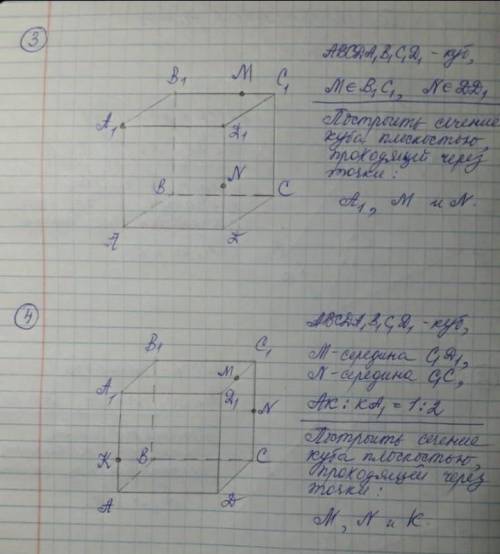 3
ABCDA₁B₁C₁D₁ - куб,
M∈B₁C₁, N∈DD₁
Построить сечение
куба плоскостью,
проходящей через
точки:
A₁, M и N.
B₁ M C₁
A₁ D₁
N
B C
A D
4
ABCDA₁B₁C₁D₁ - куб,
M-середина C₁D₁,
N-середина C₁C,
AK : KA₁ = 1:2
Построить сечение
куба плоскостью,
проходящей через
точки:
M, N и K.
B₁ C₁
M
A₁ D₁
N
K B C
A D